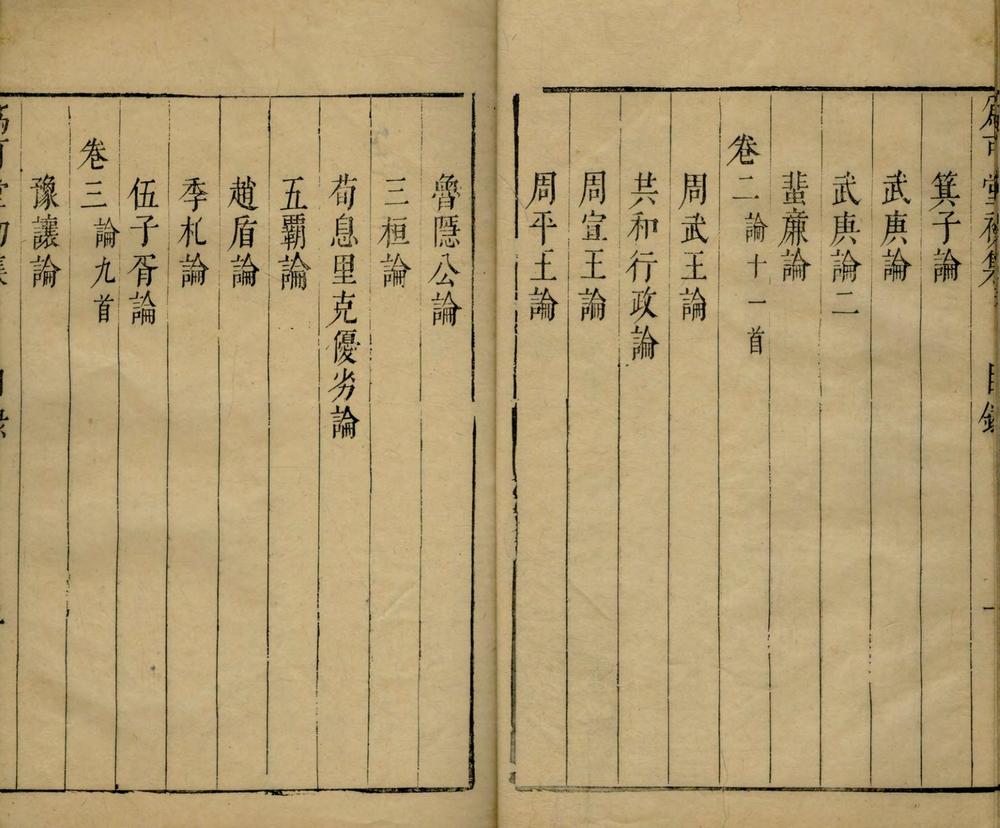 為可堂初集 目錄 一
箕子論
武庚論
武庚論二
蜚廉論
卷二 論十一首
周武王論
共和行政論
周宣王論
周平王論
魯隱公論
三桓論
荀息里克優劣論
五覇論
趙盾論
季札論
伍子胥論
卷三 論九首
豫讓論
為可堂初集 目錄